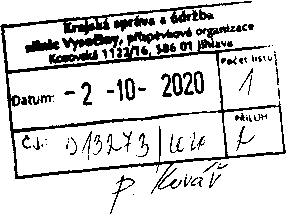 Krajská správa a údržba
silnic Vysočiny, příspěvková organizace
Kosovská 1122/16, 586 01 Jihlava
Datum: - 2 -10- 2020
Počet listů
1
Č.j.:
PŘÍLOH
p. Kovář